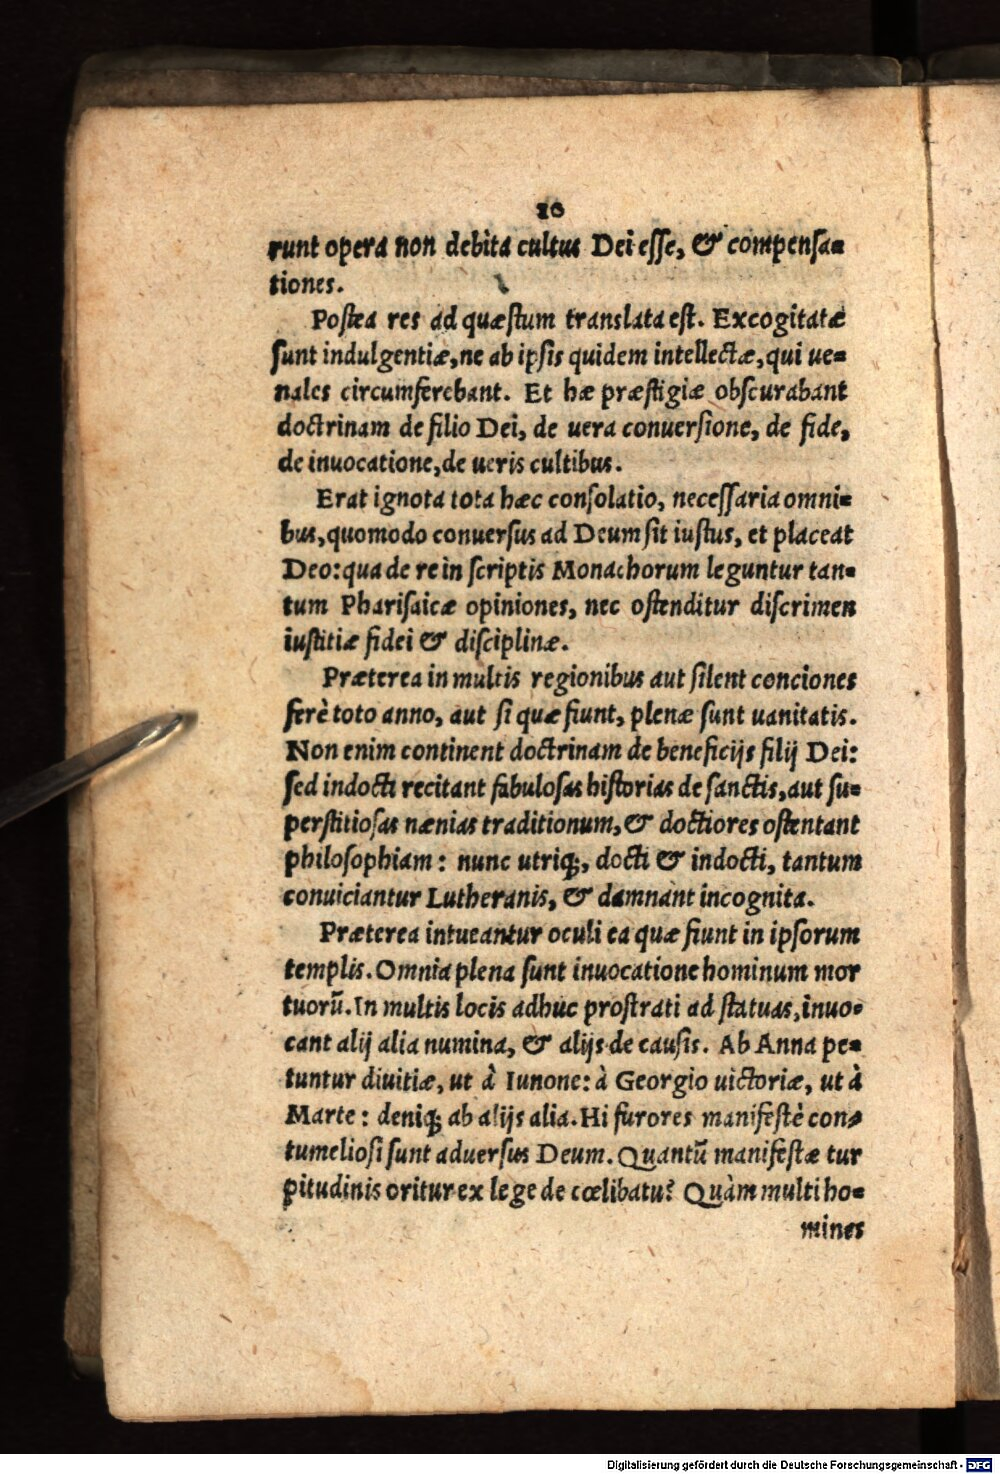 10
runt opera non debita cultus Dei esse, & compensa-
tiones.
Postea res ad quæstum translata est. Excogitatæ
sunt indulgentiæ, ne ab ipsis quidem intellectæ, qui ue-
nales circumferebant. Et hæ præstigiæ obscurabant
doctrinam de filio Dei, de uera conuersione, de fide,
de inuocatione, de ueris cultibus.
Erat ignota tota hæc consolatio, necessaria omni-
bus, quomodo conuersus ad Deum sit iustus, et placeat
Deo: qua de re in scriptis Monachorum leguntur tan-
tum Pharisaicæ opiniones, nec ostenditur discrimen
iustitiæ fidei & disciplinæ.
Præterea in multis regionibus aut silent conciones
ferè toto anno, aut si quæ fiunt, plenæ sunt uanitatis.
Non enim continent doctrinam de beneficijs filij Dei:
sed indocti recitant fabulosas historias de sanctis, aut su-
perstitiosas nænias traditionum, & doctiores ostentant
philosophiam: nunc utriq;, docti & indocti, tantum
conuiciantur Lutheranis, & damnant incognita.
Præterea intueantur oculi ea quæ fiunt in ipsorum
templis. Omnia plena sunt inuocatione hominum mor
tuorū. In multis locis adhuc prostrati ad statuas, inuo-
cant alij alia numina, & alijs de causis. Ab Anna pe-
tuntur diuitiæ, ut à Iunone: à Georgio uictoriæ, ut à
Marte: deniq; ab alijs alia. Hi furores manifestè con-
tumeliosi sunt aduersus Deum. Quantū manifestæ tur
pitudinis oritur ex lege de cœlibatu? Quàm multi ho-
mines
Digitalisierung gefördert durch die Deutsche Forschungsgemeinschaft - DFG